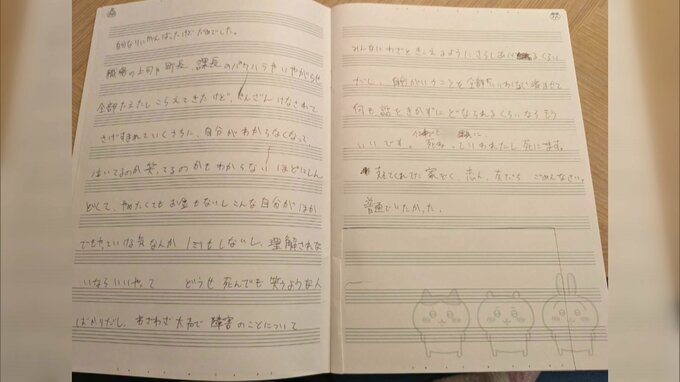 自分なりにがんばったけどだめでした。
職場の上司や町長、課長のパワハラやいやがらせ
全部たえたしこらえてきたけど、さんざんけなされて
さげすまれていくうちに、自分がわからなくなって、
泣いてるのか笑ってるのかもわからないほどにしん
どくて、やめたくてもお金もないしこんな自分がほか
でもやっていける気なんか1ミリもしないし、理解されな
いならいいやって どうせ死んでも笑うような人
ばかりだし、わざわざ大声で障害のことについて
みんなにわざときこえるように、さらしあげるくらい
だし、自分がいうことを全部 済ませて
何も話をきかずにどなられるくらいならもう
いいです。 死ね、っていわれたし死にます。
支えてくれてた家ぞく、恋人、友だち ごめんなさい。
普通でいたかった。